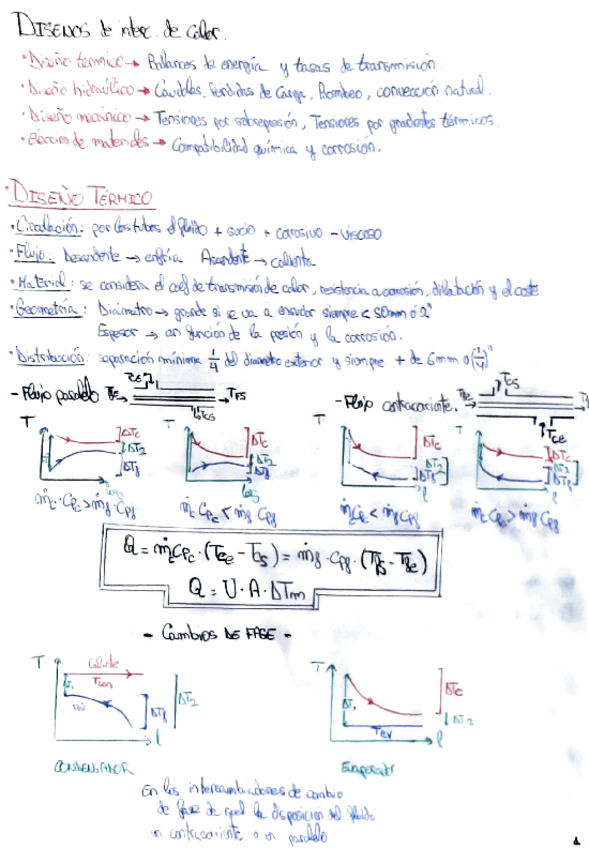 DISEÑOS de interc. de calor.
· Diseño térmico → Balances de energía y tasas de transmisión.
· Diseño hidraúlico → Caudales, Pérdidas de Carga, Bombeo, convección natural.
· Diseño mecánico → Tensiones por sobrepresión, Tensiones por gradientes térmicos.
· Elección de materiales → Compatibilidad química y corrosión.
· DISEÑO TÉRMICO
· Circulación: por los tubos el fluido + sucio + corrosivo - viscoso
· Flujo: Descendente → enfría Ascendente → calienta
· Material: se considera el coef de transmisión de calor, resistencia a corrosión, dilatación y el coste.
· Geometría: Diámetro → grande si se va a ensuciar siempre < 50mm ó 2"
Espesor → en función de la presión y la corrosión.
· Distribución: separación mínima 1/4 del diametro exterior y siempre + de 6mm o (1/4)"
- Flujo paralelo Tfe Tce Tfs Tcs
- Flujo contracorriente. Tfe Tcs Tce
T ΔTc ΔT2 ΔTf T ΔTc ΔT2 ΔTf T ΔTc ΔT2 ΔTf l T ΔTc ΔT2 ΔTf l
ṁc·Cpc > ṁf·Cpf ṁc Cpc < ṁf Cpf ṁc Cpc < ṁf Cpf ṁc Cpc > ṁf Cpf
Q = ṁc Cpc · (Tce - Tcs) = ṁf · Cpf · (Tfs - Tfe)
Q = U · A · ΔTm
- Cambios DE FASE -
T Caliente Tcon ΔT1 ΔTf ΔT2 l
T ΔT1 ΔTc ΔT2 Tev l
CONDENSADOR Evaporador
En los intercambiadores de cambio
de fase da igual la disposición del fluido
en contracorriente o en paralelo
1